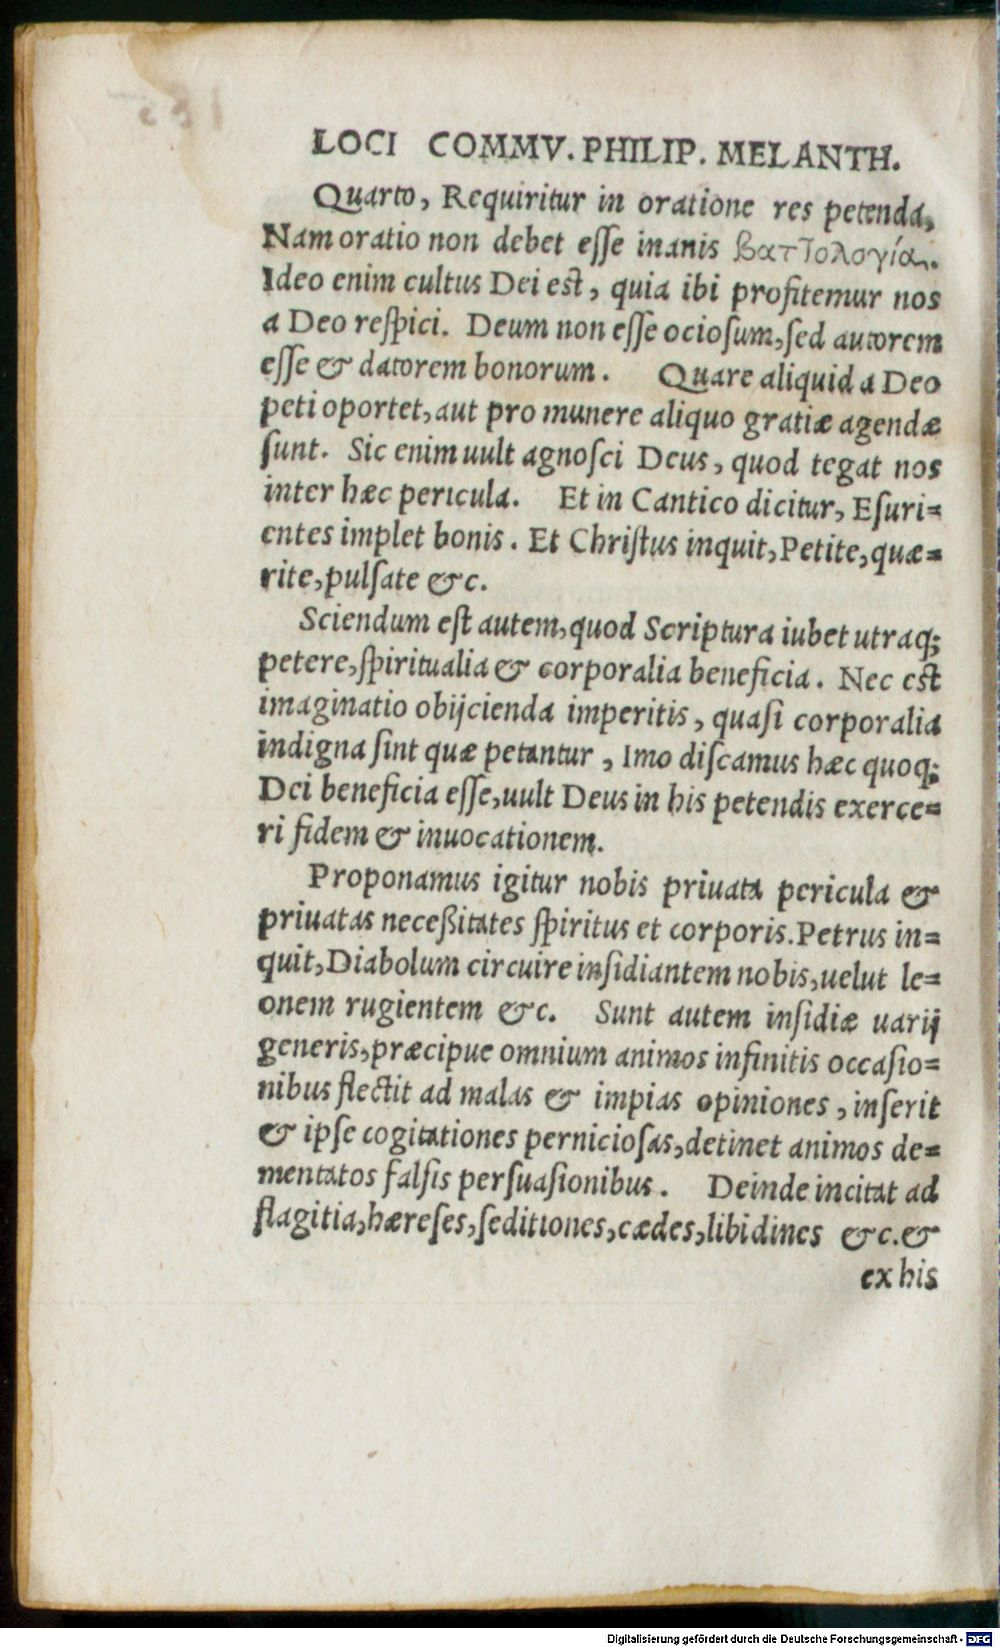 LOCI COMMV. PHILIP. MELANTH.
Quarto, Requiritur in oratione res petenda,
Nam oratio non debet eſſe inanis βαττολογία.
Ideo enim cultus Dei est, quia ibi profitemur nos
a Deo reſpici. Deum non eſſe ocioſum, ſed autorem
eſſe & datorem bonorum. Quare aliquid a Deo
peti oportet, aut pro munere aliquo gratiæ agendæ
ſunt. Sic enim uult agnoſci Deus, quod tegat nos
inter hæc pericula. Et in Cantico dicitur, Eſuri=
entes implet bonis. Et Chriſtus inquit, Petite, quæ=
rite, pulſate &c.
Sciendum eſt autem, quod Scriptura iubet utraq;
petere, ſpiritualia & corporalia beneficia. Nec est
imaginatio obijcienda imperitis, quaſi corporalia
indigna ſint quæ petantur, Imo diſcamus hæc quoq;
Dei beneficia eſſe, uult Deus in his petendis exerce=
ri fidem & inuocationem.
Proponamus igitur nobis priuata pericula &
priuatas neceßitates ſpiritus et corporis. Petrus in=
quit, Diabolum circuire inſidiantem nobis, uelut le=
onem rugientem &c. Sunt autem inſidiæ uarij
generis, præcipue omnium animos infinitis occaſio=
nibus flectit ad malas & impias opiniones, inſerit
& ipſe cogitationes pernicioſas, detinet animos de=
mentatos falſis perſuaſionibus. Deinde incitat ad
flagitia, hæreſes, ſeditiones, cædes, libidines &c. &
ex his
Digitalisierung gefördert durch die Deutsche Forschungsgemeinschaft - DFG